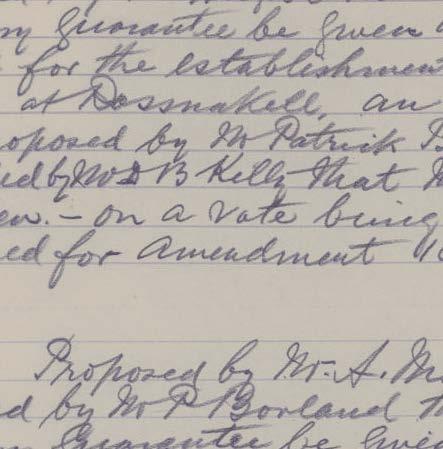 Guarantee be given
for the establishment
at Dossnakell, an
oposed by Mr Patrick B
ed by Mr D B Kelly that
en. - on a vote being
ed for Amendment
Proposed by Mr. A. M
ed by Mr P Borland th
Guarantee be Give